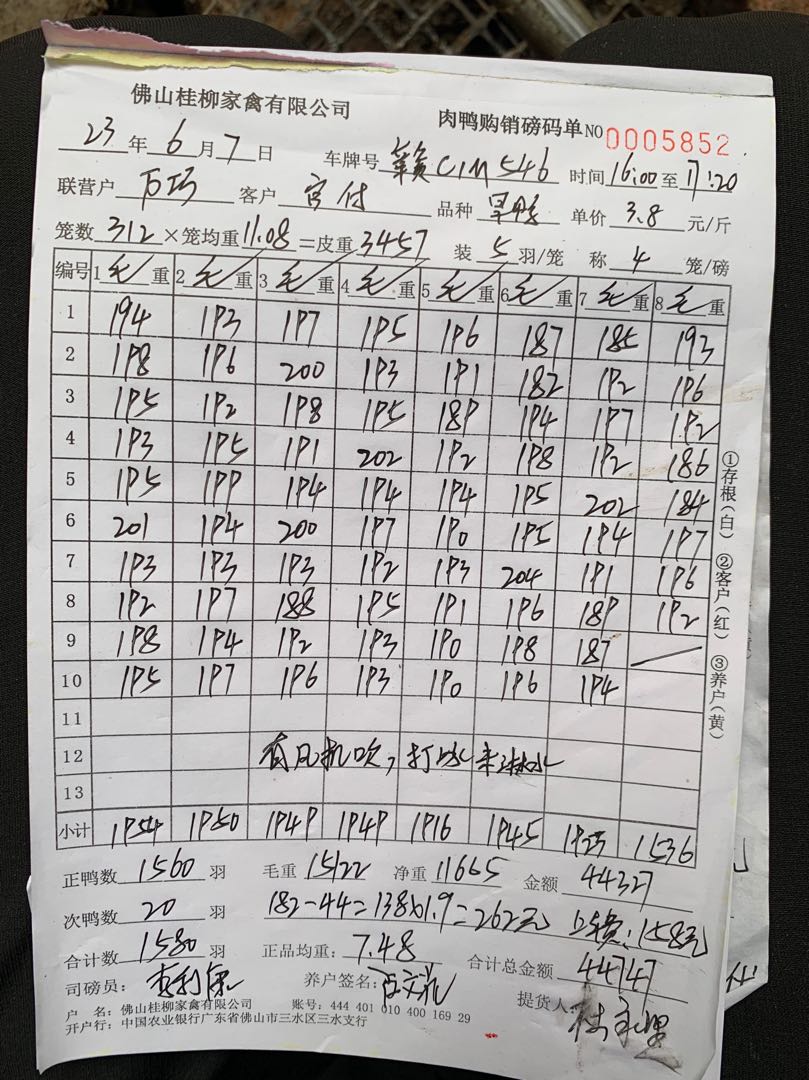 佛山桂柳家禽有限公司 肉鸭购销磅码单 NO 0005852
23 年 6 月 7 日 车牌号 赣C1M546 时间 16:00 至 17:20
联营户 客户 宫付 品种 单价 3.8 元/斤
笼数 312 ×笼均重 11.08 =皮重 3457 装 5 羽/笼 称 4 笼/磅
编号 1 毛 重 2 毛 重 3 毛 重 4 毛 重 5 毛 重 6 毛 重 7 毛 重 8 毛 重
1 194 193 197 195 196 187 185 193
2 198 196 200 193 191 182 192 196
3 195 192 198 195 189 194 197 192
4 193 195 191 202 192 198 192 186
5 195 199 194 194 194 195 202 184
6 201 194 200 197 190 195 194 197
7 193 193 193 192 193 204 191 196
8 192 197 188 195 191 196 189 192
9 198 194 192 193 190 198 187
10 195 197 196 193 190 196 194
11
12 有风机吹,打水来淋水
13
小计 1954 1950 1949 1949 1916 1945 1923 1536
正鸭数 1560 羽 毛重 15122 净重 11665 金额 44327
次鸭数 20 羽 182-44=138×1.9=262元 上车费:158元
合计数 1580 羽 正品均重: 7.48 合计总金额 44747
司磅员: 养户签名: 提货人
户 名: 佛山桂柳家禽有限公司 账号: 444 401 010 400 169 29
开户行: 中国农业银行广东省佛山市三水区三水支行
①存根(白) ②客户(红) ③养户(黄)